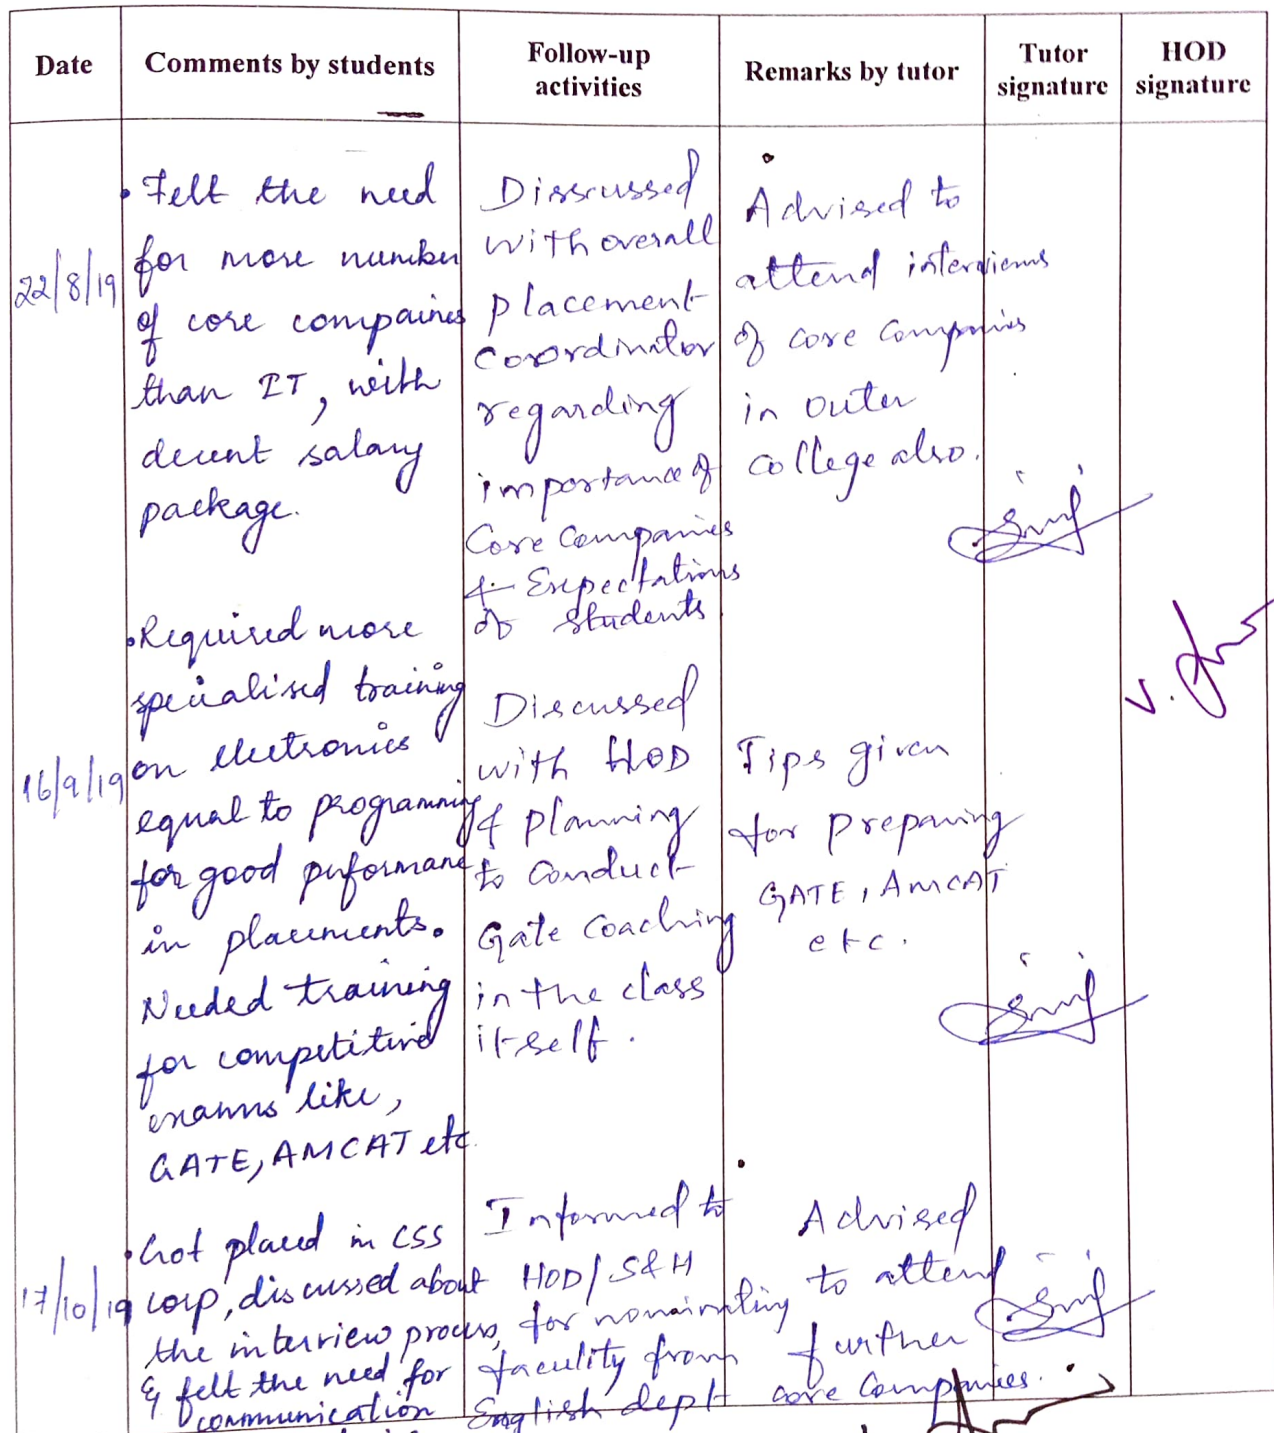 Date
Comments by students
Follow-up
activities
Remarks by tutor
Tutor
signature
HOD
signature
22/8/19
• Felt the need
for more number
of core compaines
than IT, with
decent salary
package.
Disscussed
with overall
placement
coordinator
regarding
importance of
Core Companies
& Expectations
of students
Advised to
attend interviews
of core companies
in outer
college also.
16/9/19
• Required more
specialised training
on electronics
equal to programming
for good performane
in placements.
Needed training
for competitive
exams like,
GATE, AMCAT etc.
Discussed
with HOD
& planning
to conduct
Gate Coaching
in the class
itself.
Tips given
for preparing
GATE, AMCAT
etc.
V.
17/10/19
• Got placed in CSS
corp, discussed about
the interview process,
& felt the need for
communication
Informed to
HOD/S&H
for nominating
faculity from
English dept
Advised
to attend
further
core Companies.